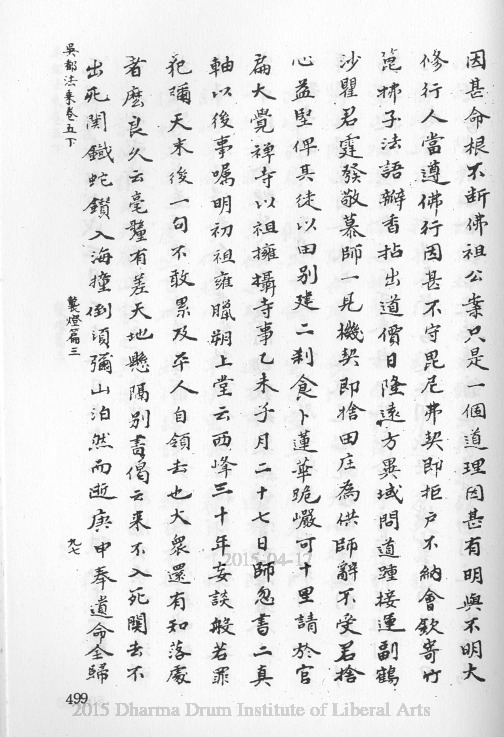 因甚命根不斷佛祖公案只是一個道理因甚有明與不明大
修行人當遵佛行因甚不守毘尼弗契即拒戶不納會欽寄竹
篦拂子法語瓣香拈出道價日隆遠方異域問道踵接運副鶴
沙瞿君霆發敬慕師一見機契即捨田庄為供師辭不受君捨
心益堅俾其徒以田別建二剎食卜蓮華跪巘可十里請於官
扁大覺禪寺以祖擁攝寺事乙未子月二十七日師忽書二真
軸以後事囑明初祖雍臘朔上堂云西峰三十年妄談般若罪
犯彌天末後一句不敢累及平人自領去也大眾還有知落處
者麼良久云毫釐有差天地懸隔別書偈云來不入死關去不
出死関鐵蛇鑽入海撞倒須彌山泊然而逝庚申奉遺命全歸
吳都法乘卷五下
襲燈篇三
九七
499
2015-04-17
2015 Dharma Drum Institute of Liberal Arts